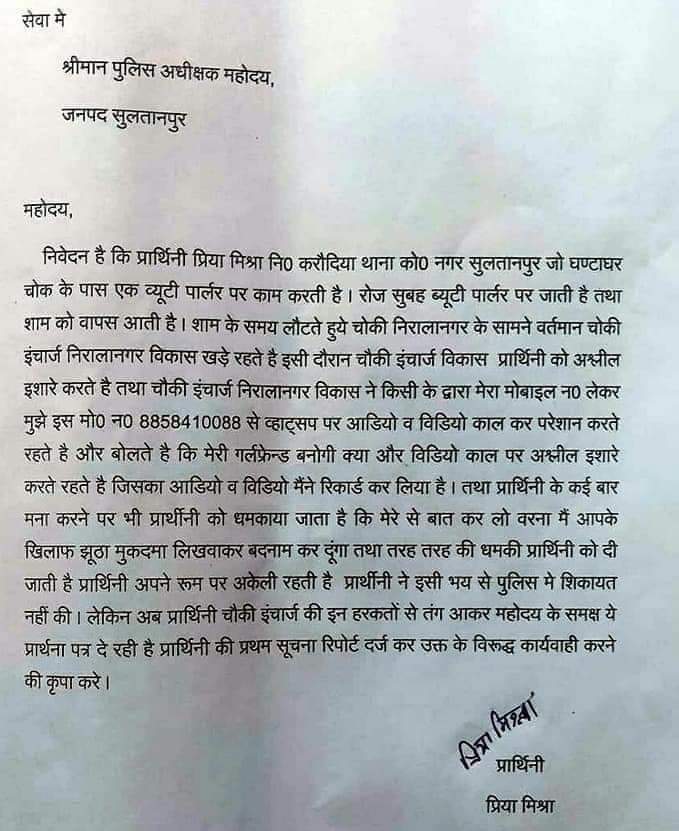 सेवा मे
श्रीमान पुलिस अधीक्षक महोदय,
जनपद सुलतानपुर
महोदय,
निवेदन है कि प्रार्थिनी प्रिया मिश्रा नि0 करौदिया थाना को0 नगर सुलतानपुर जो घण्टाघर
चोक के पास एक व्यूटी पार्लर पर काम करती है। रोज सुबह ब्यूटी पार्लर पर जाती है तथा
शाम को वापस आती है। शाम के समय लौटते हुये चोकी निरालानगर के सामने वर्तमान चोकी
इंचार्ज निरालानगर विकास खड़े रहते है इसी दौरान चौकी इंचार्ज विकास प्रार्थिनी को अश्लील
इशारे करते है तथा चौकी इंचार्ज निरालानगर विकास ने किसी के द्वारा मेरा मोबाइल न0 लेकर
मुझे इस मो0 न0 8858410088 से व्हाट्सप पर आडियो व विडियो काल कर परेशान करते
रहते है और बोलते है कि मेरी गर्लफ्रेन्ड बनोगी क्या और विडियो काल पर अश्लील इशारे
करते रहते है जिसका आडियो व विडियो मैंने रिकार्ड कर लिया है। तथा प्रार्थिनी के कई बार
मना करने पर भी प्रार्थीनी को धमकाया जाता है कि मेरे से बात कर लो वरना मैं आपके
खिलाफ झूठा मुकदमा लिखवाकर बदनाम कर दूंगा तथा तरह तरह की धमकी प्रार्थिनी को दी
जाती है प्रार्थिनी अपने रूम पर अकेली रहती है प्रार्थीनी ने इसी भय से पुलिस मे शिकायत
नहीं की। लेकिन अब प्रार्थिनी चौकी इंचार्ज की इन हरकतों से तंग आकर महोदय के समक्ष ये
प्रार्थना पत्र दे रही है प्रार्थिनी की प्रथम सूचना रिपोर्ट दर्ज कर उक्त के विरूद्ध कार्यवाही करने
की कृपा करे।
प्रिया मिश्रा
प्रार्थिनी
प्रिया मिश्रा